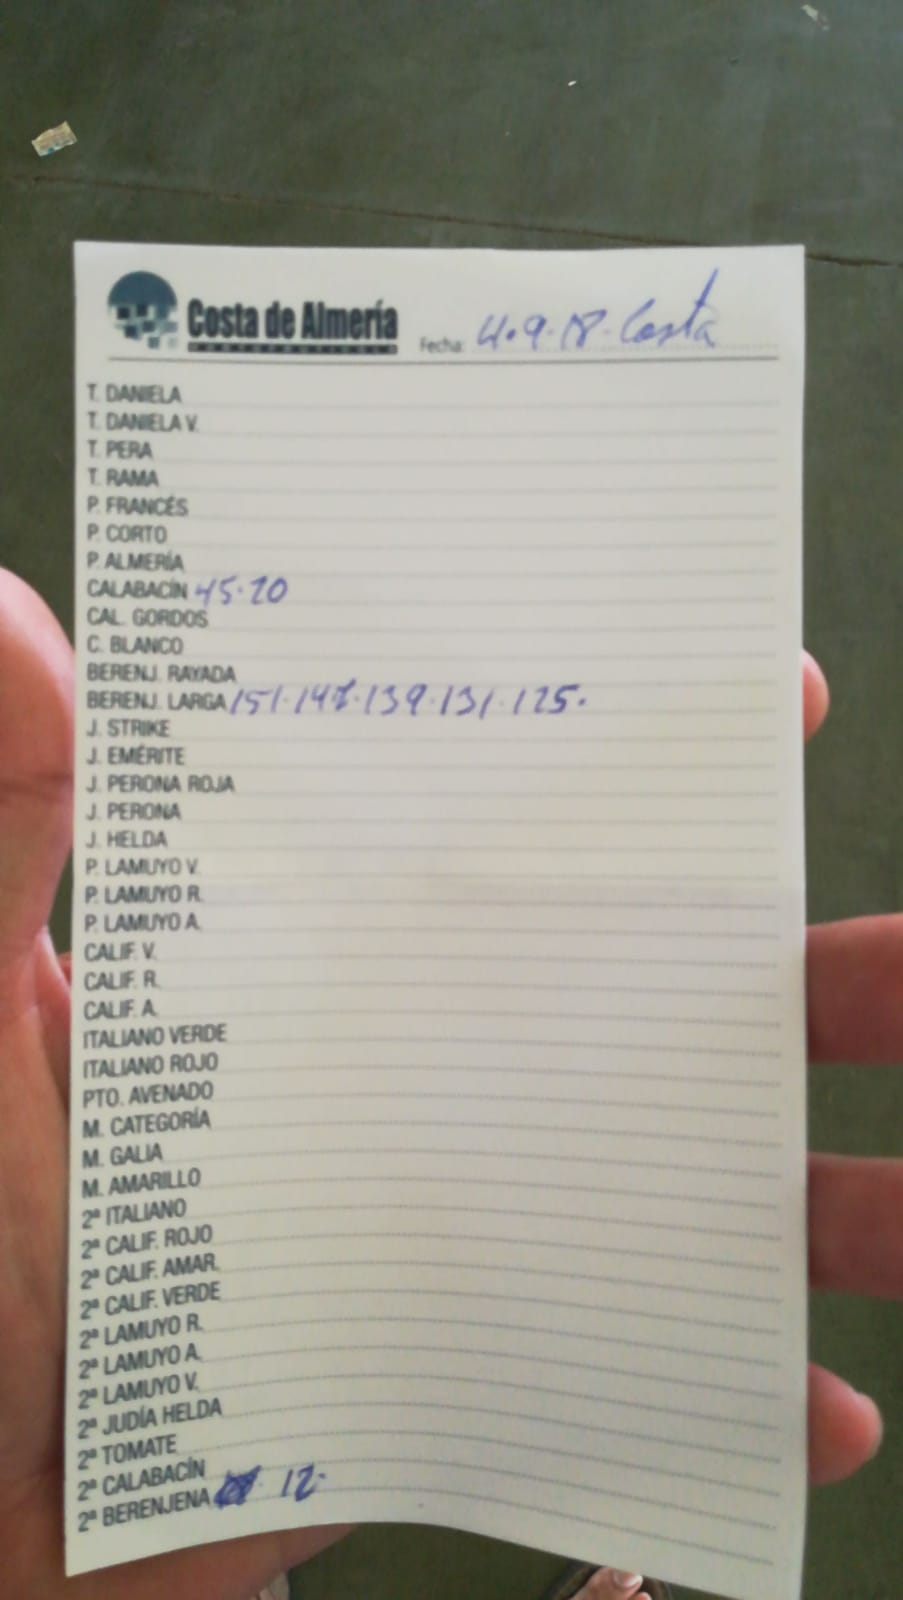 Costa de Almería
HORTOFRUTÍCOLA
Fecha: 4.9.18. Costa
T. DANIELA
T. DANIELA V.
T. PERA
T. RAMA
P. FRANCÉS
P. CORTO
P. ALMERÍA
CALABACÍN 45.20
CAL. GORDOS
C. BLANCO
BERENJ. RAYADA
BERENJ. LARGA 151.147.139.131.125.
J. STRIKE
J. EMÉRITE
J. PERONA ROJA
J. PERONA
J. HELDA
P. LAMUYO V.
P. LAMUYO R.
P. LAMUYO A.
CALIF. V.
CALIF. R.
CALIF. A.
ITALIANO VERDE
ITALIANO ROJO
PTO. AVENADO
M. CATEGORÍA
M. GALIA
M. AMARILLO
2ª ITALIANO
2ª CALIF. ROJO
2ª CALIF. AMAR.
2ª CALIF. VERDE
2ª LAMUYO R.
2ª LAMUYO A.
2ª LAMUYO V.
2ª JUDÍA HELDA
2ª TOMATE
2ª CALABACÍN
2ª BERENJENA 12.